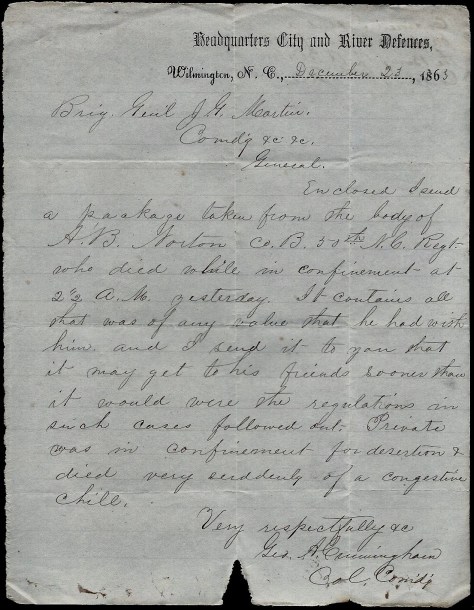 Headquarters City and River Defences,
Wilmington, N. C., December 23, 1863
Brig. Genl J. G. Martin.
Comdg &c &c.
General.
Enclosed I send
a package taken from the body of
A. B. Norton Co. B. 50th N.C. Regt
who died while in confinement at
2½ A.M. yesterday. It contains all
that was of any value that he had with
him and I send it to you that
it may get to his friends sooner than
it would were the regulations in
such cases followed out. Private
was in confinement for desertion &
died very suddenly of a congestive
chill.
Very respectfully &c
Geo. A. Cunningham
Col. Comdg